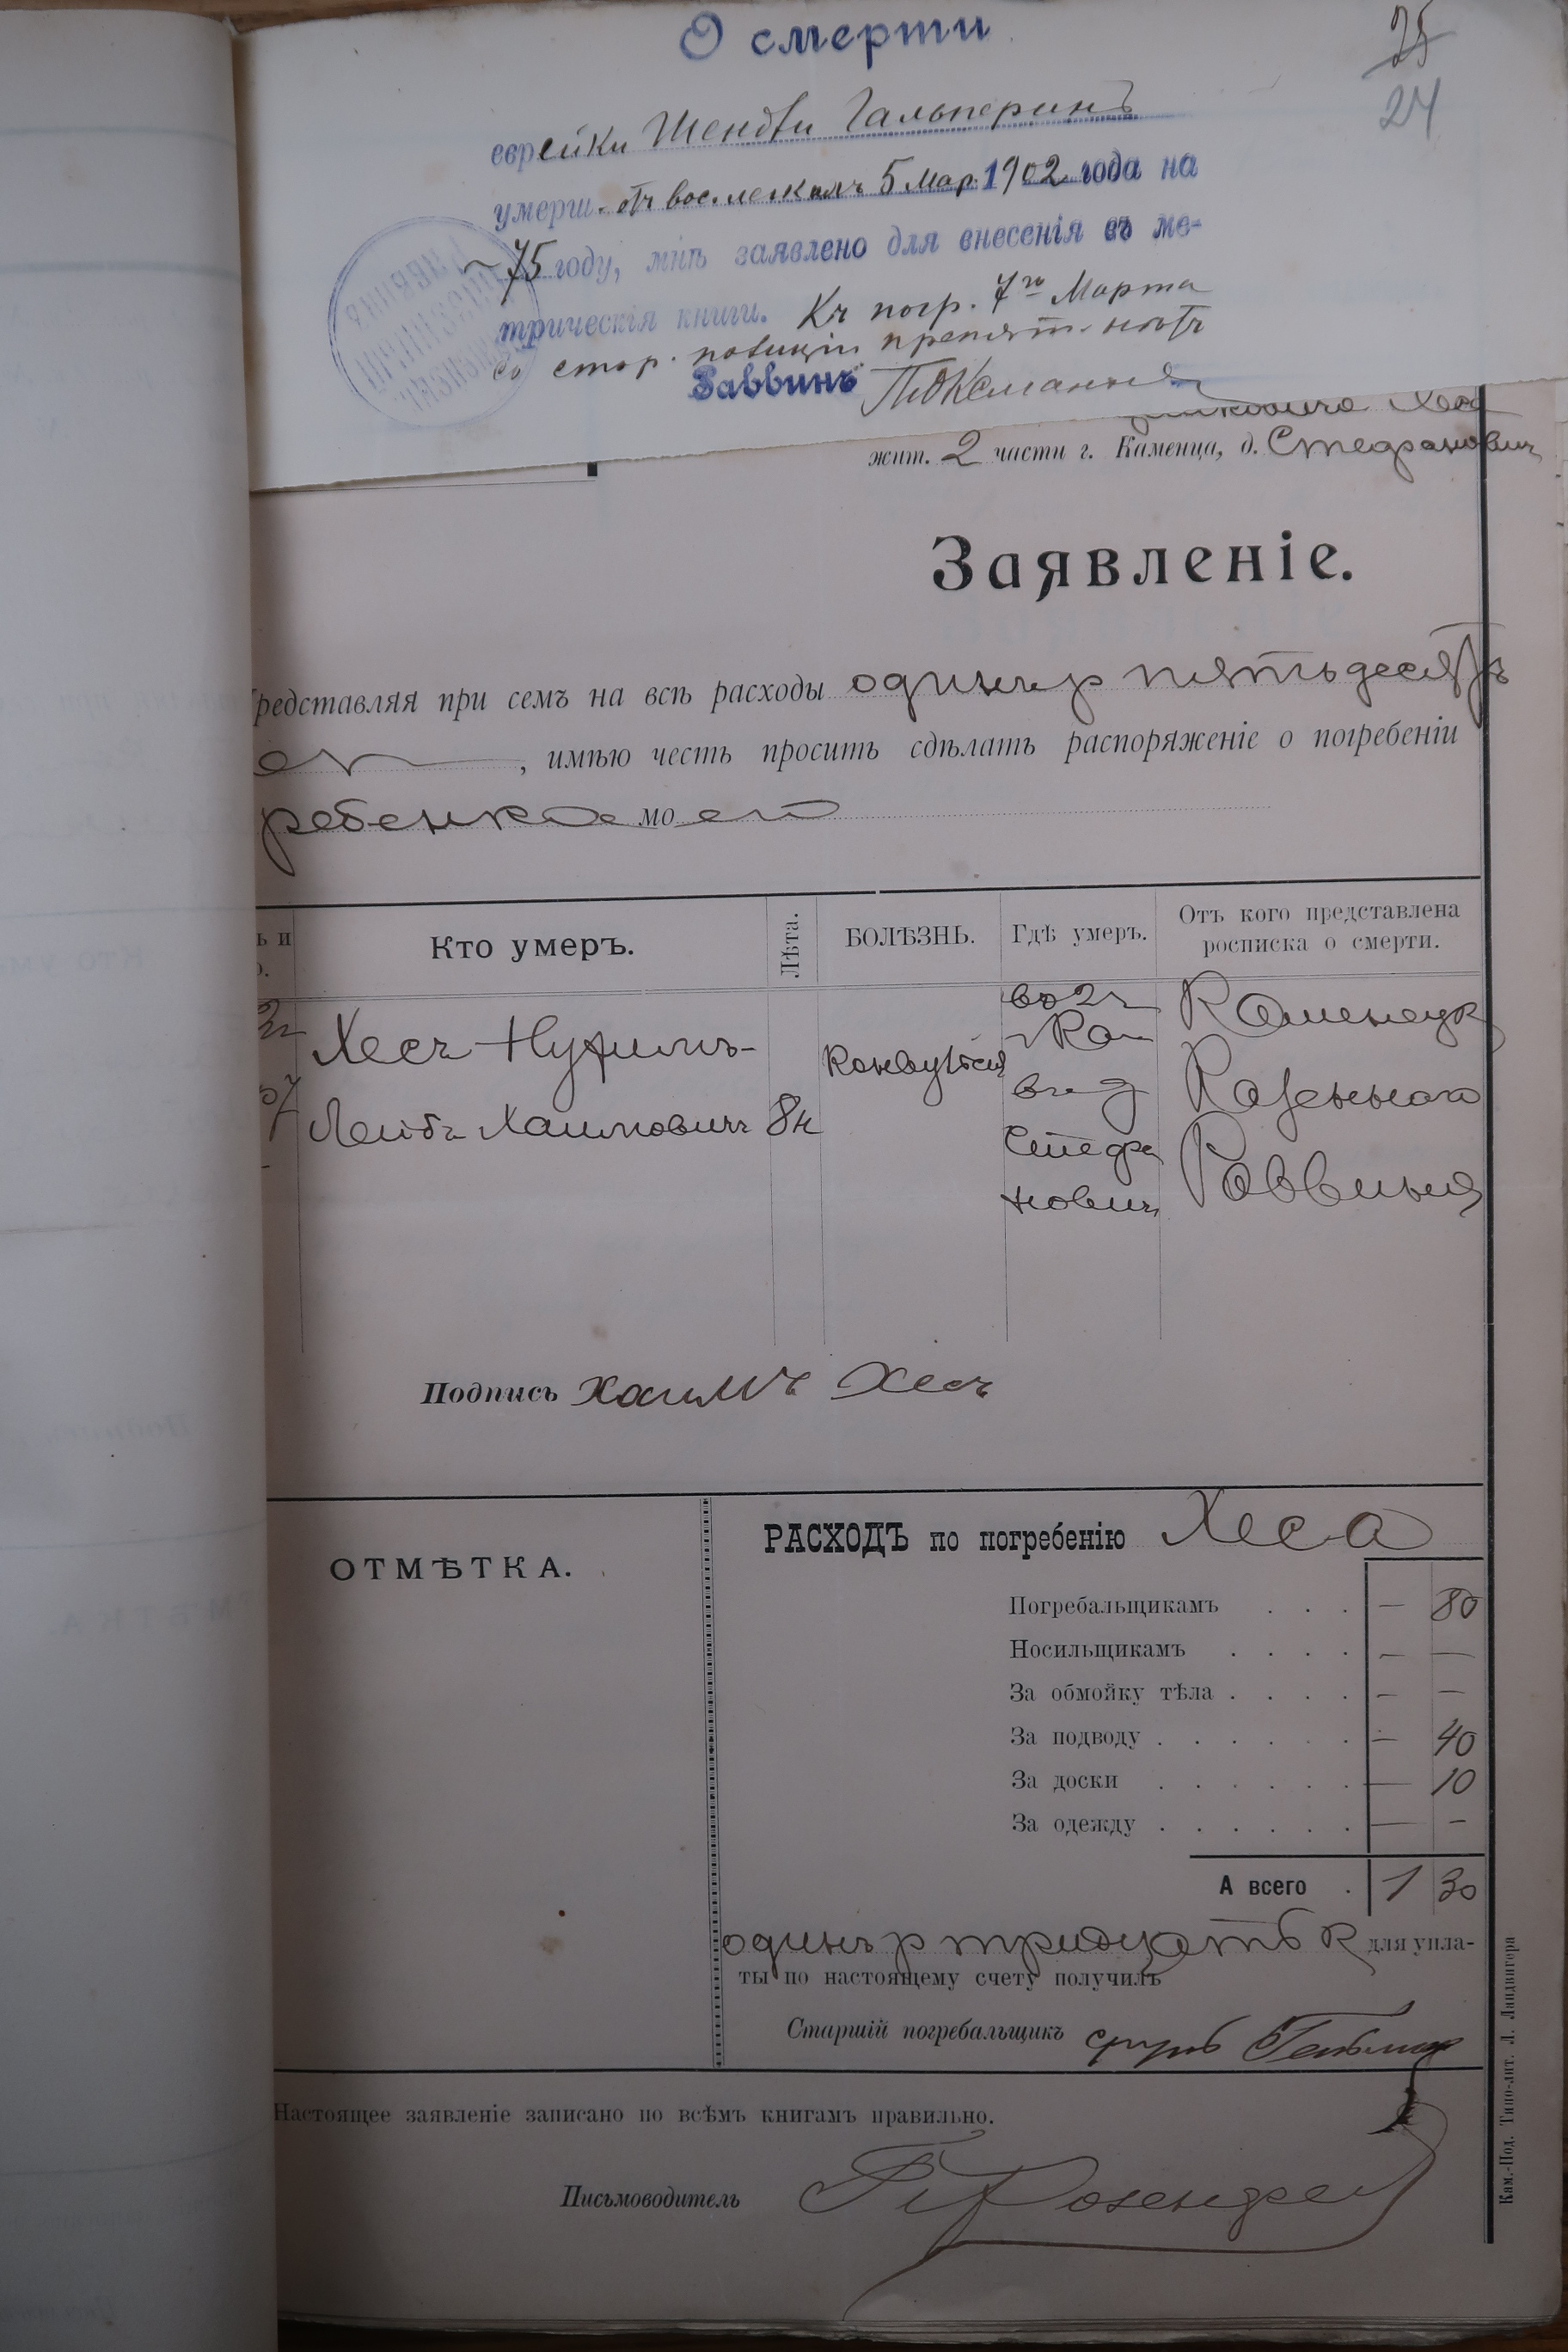 О смерти
25
24
еврейки Шендли Гальперинъ
умерш. отъ восп. легкихъ 5 Мар. 1902 года на
75 году, мнѣ заявлено для внесенія въ ме-
трическія книги. Къ погр. 7го Марта
со стор. полиціи препят. нѣтъ
Раввинъ
жит. 2 части г. Каменца, д. Стефановичъ
Заявленіе.
Представляя при семъ на всѣ расходы одинъ р пятьдесятъ
, имѣю честь просить сдѣлать распоряженіе о погребеніи
ребенка моего
Кто умеръ.
Лѣта.
БОЛѢЗНЬ.
Гдѣ умеръ.
Отъ кого представлена
росписка о смерти.
Хесъ Нухимъ-
Лейбъ Хаимовичъ
8 н
Конвульсія
въ 2 ч
г Кам
въ д
Стефа
новичъ
Каменецк
Казеннаго
Раввина
Подпись Хаимъ Хесъ
ОТМѢТКА.
РАСХОДЪ по погребенію Хеса
Погребальщикамъ . . . — 80
Носильщикамъ . . . . — —
За обмойку тѣла . . . . — —
За подводу . . . . . . — 40
За доски . . . . . . — 10
За одежду . . . . . . — —
А всего . 1 30
одинъ р тридцать к для упла-
ты по настоящему счету получилъ
Старшій погребальщикъ
Настоящее заявленіе записано по всѣмъ книгамъ правильно.
Письмоводитель
Кам.-Под. Типо-лит. Л. Ландвигера